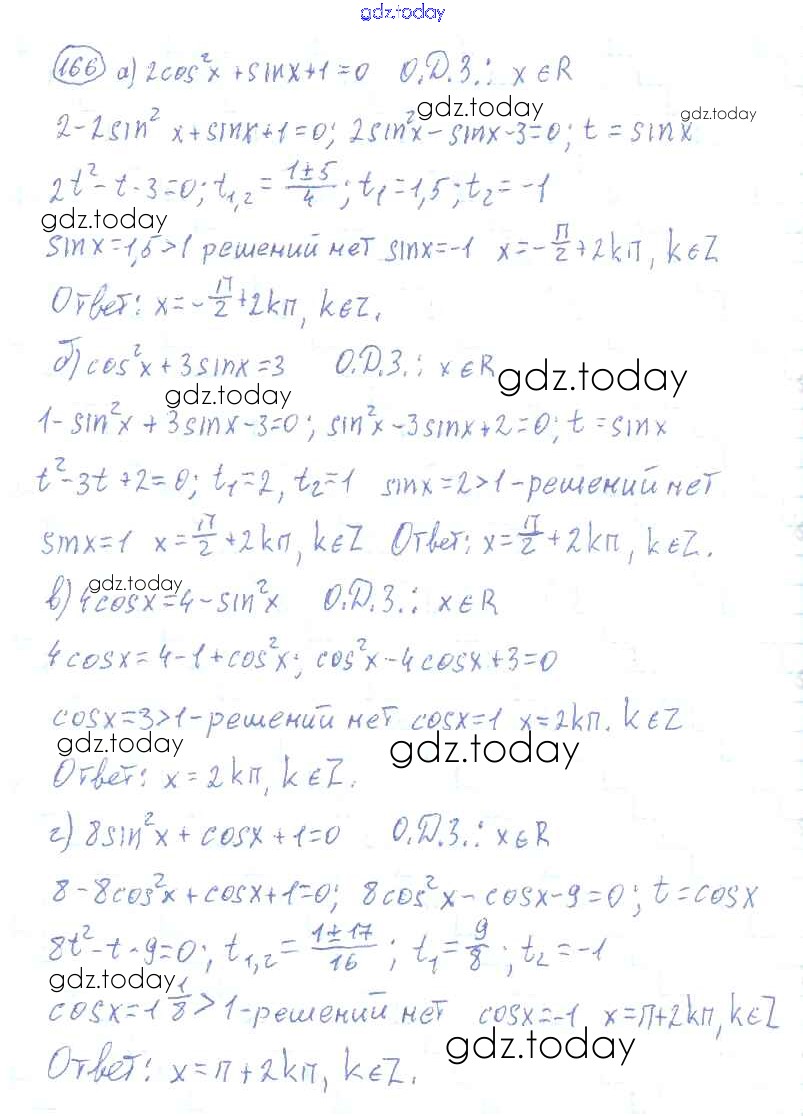 gdz.today
166 а) 2cos²x + sinx + 1 = 0 О.Д.З.: x ∈ R
gdz.today gdz.today
2 - 2sin²x + sinx + 1 = 0; 2sin²x - sinx - 3 = 0; t = sinx
2t² - t - 3 = 0; t₁,₂ = (1±5)/4; t₁ = 1,5; t₂ = -1
gdz.today
sinx = 1,5 > 1 решений нет sinx = -1 x = -π/2 + 2kπ, k ∈ Z
Ответ: x = -π/2 + 2kπ, k ∈ Z.
б) cos²x + 3sinx = 3 О.Д.З.: x ∈ R
gdz.today gdz.today
1 - sin²x + 3sinx - 3 = 0; sin²x - 3sinx + 2 = 0; t = sinx
t² - 3t + 2 = 0; t₁ = 2, t₂ = 1 sinx = 2 > 1 - решений нет
sinx = 1 x = π/2 + 2kπ, k ∈ Z Ответ: x = π/2 + 2kπ, k ∈ Z.
gdz.today
в) 4cosx = 4 - sin²x О.Д.З.: x ∈ R
4cosx = 4 - 1 + cos²x; cos²x - 4cosx + 3 = 0
cosx = 3 > 1 - решений нет cosx = 1 x = 2kπ. k ∈ Z
gdz.today gdz.today
Ответ: x = 2kπ, k ∈ Z.
г) 8sin²x + cosx + 1 = 0 О.Д.З.: x ∈ R
8 - 8cos²x + cosx + 1 = 0; 8cos²x - cosx - 9 = 0; t = cosx
8t² - t - 9 = 0; t₁,₂ = (1±17)/16; t₁ = 9/8; t₂ = -1
gdz.today
cosx = 1 1/8 > 1 - решений нет cosx = -1 x = π + 2kπ, k ∈ Z
gdz.today
Ответ: x = π + 2kπ, k ∈ Z.